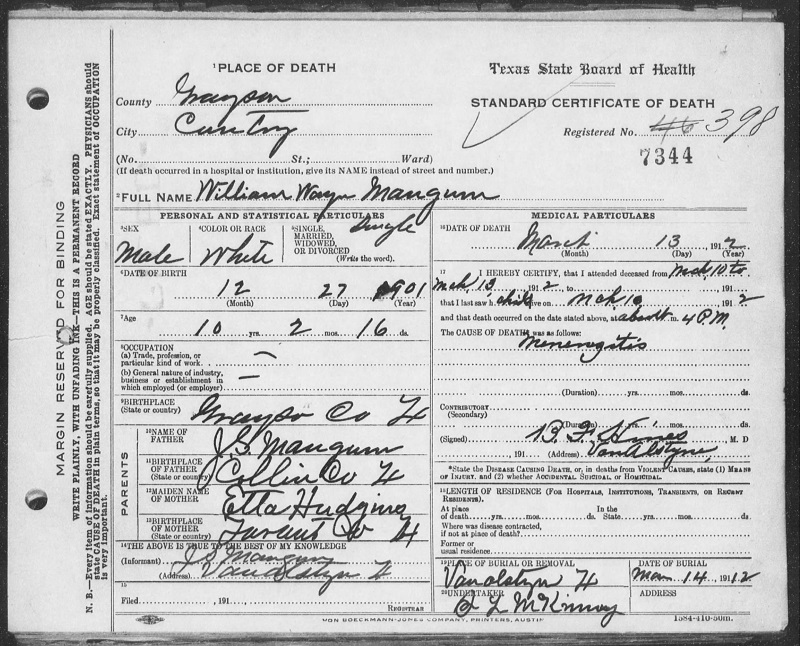 MARGIN RESERVED FOR BINDING
WRITE PLAINLY, WITH UNFADING INK—THIS IS A PERMANENT RECORD
N. B.—Every item of information should be carefully supplied. AGE should be stated EXACTLY. PHYSICIANS should
state CAUSE OF DEATH in plain terms, so that it may be properly classified. Exact statement of OCCUPATION
is very important.
1 PLACE OF DEATH
County Grayson
City Cuntry
(No. St.; Ward)
(If death occurred in a hospital or institution, give its NAME instead of street and number.)
Texas State Board of Health
STANDARD CERTIFICATE OF DEATH
Registered No. 46 398
7344
2 FULL NAME William Wayn Mangum
PERSONAL AND STATISTICAL PARTICULARS
3 SEX
Male
4 COLOR OR RACE
White
5 SINGLE, MARRIED, WIDOWED, OR DIVORCED
(Write the word.)
Single
6 DATE OF BIRTH
12 27 1901
(Month) (Day) (Year)
7 Age
10 yrs. 2 mos. 16 ds.
8 OCCUPATION
(a) Trade, profession, or
particular kind of work
(b) General nature of industry,
business or establishment in
which employed (or employer)
9 BIRTHPLACE
(State or country)
Grayso Co
PARENTS
10 NAME OF FATHER
J. S. Mangum
11 BIRTHPLACE OF FATHER
(State or country)
Collin Co
12 MAIDEN NAME OF MOTHER
Etta Hudgins
13 BIRTHPLACE OF MOTHER
(State or country)
Co
14 THE ABOVE IS TRUE TO THE BEST OF MY KNOWLEDGE
(Informant) J S Mangum
(Address) Van Alstyn
15
Filed 191
REGISTRAR
MEDICAL PARTICULARS
16 DATE OF DEATH
March 13 1912
(Month) (Day) (Year)
17 I HEREBY CERTIFY, that I attended deceased from Mch 10 to
Mch 13 1912 191
that I last saw h child alive on Mch 1912
and that death occurred on the date stated above, at about m. 4 P.M.
The CAUSE OF DEATH was as follows:
Menengitis
(Duration) yrs. mos. ds.
CONTRIBUTORY
(Secondary)
(Duration) yrs. mos. ds.
(Signed) B. F. M. D
191 (Address) Van Alstyne
*State the DISEASE CAUSING DEATH, or, in deaths from VIOLENT CAUSES, state (1) MEANS
OF INJURY, and (2) whether ACCIDENTAL SUICIDAL or HOMICIDAL.
18 LENGTH OF RESIDENCE (FOR HOSPITALS, INSTITUTIONS, TRANSIENTS, OR RECENT
RESIDENTS).
At place of death yrs. mos. ds. In the State yrs. mos. ds.
Where was disease contracted,
if not at place of death?
Former or
usual residence
19 PLACE OF BURIAL OR REMOVAL
Van alstyn
DATE OF BURIAL
Mar 14 1912
20 UNDERTAKER
McKinney
ADDRESS
VON BOECKMANN-JONES COMPANY, PRINTERS, AUSTIN
1584-410-50m.